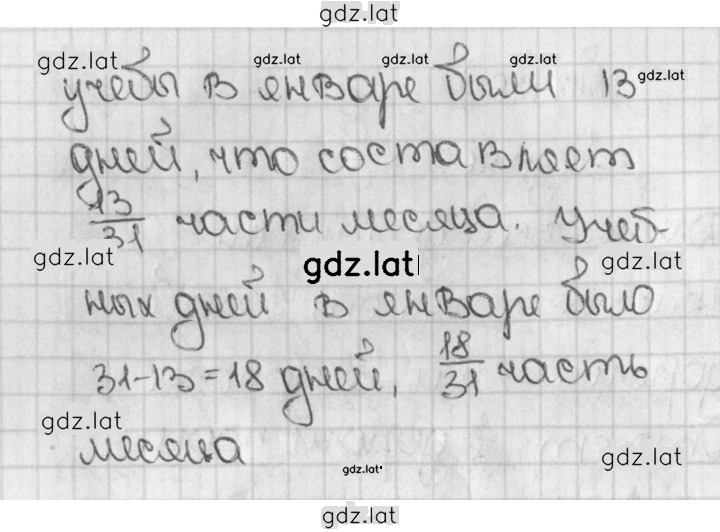 gdz.lat
gdz.lat gdz.lat gdz.lat gdz.lat
учебы в январе были 13 gdz.lat
дней, что составляет
13/31 части месяца. Учеб-
gdz.lat gdz.lat gdz.lat
ных дней в январе было
31-13=18 дней, 18/31 часть
gdz.lat
месяца gdz.lat gdz.lat
gdz.lat